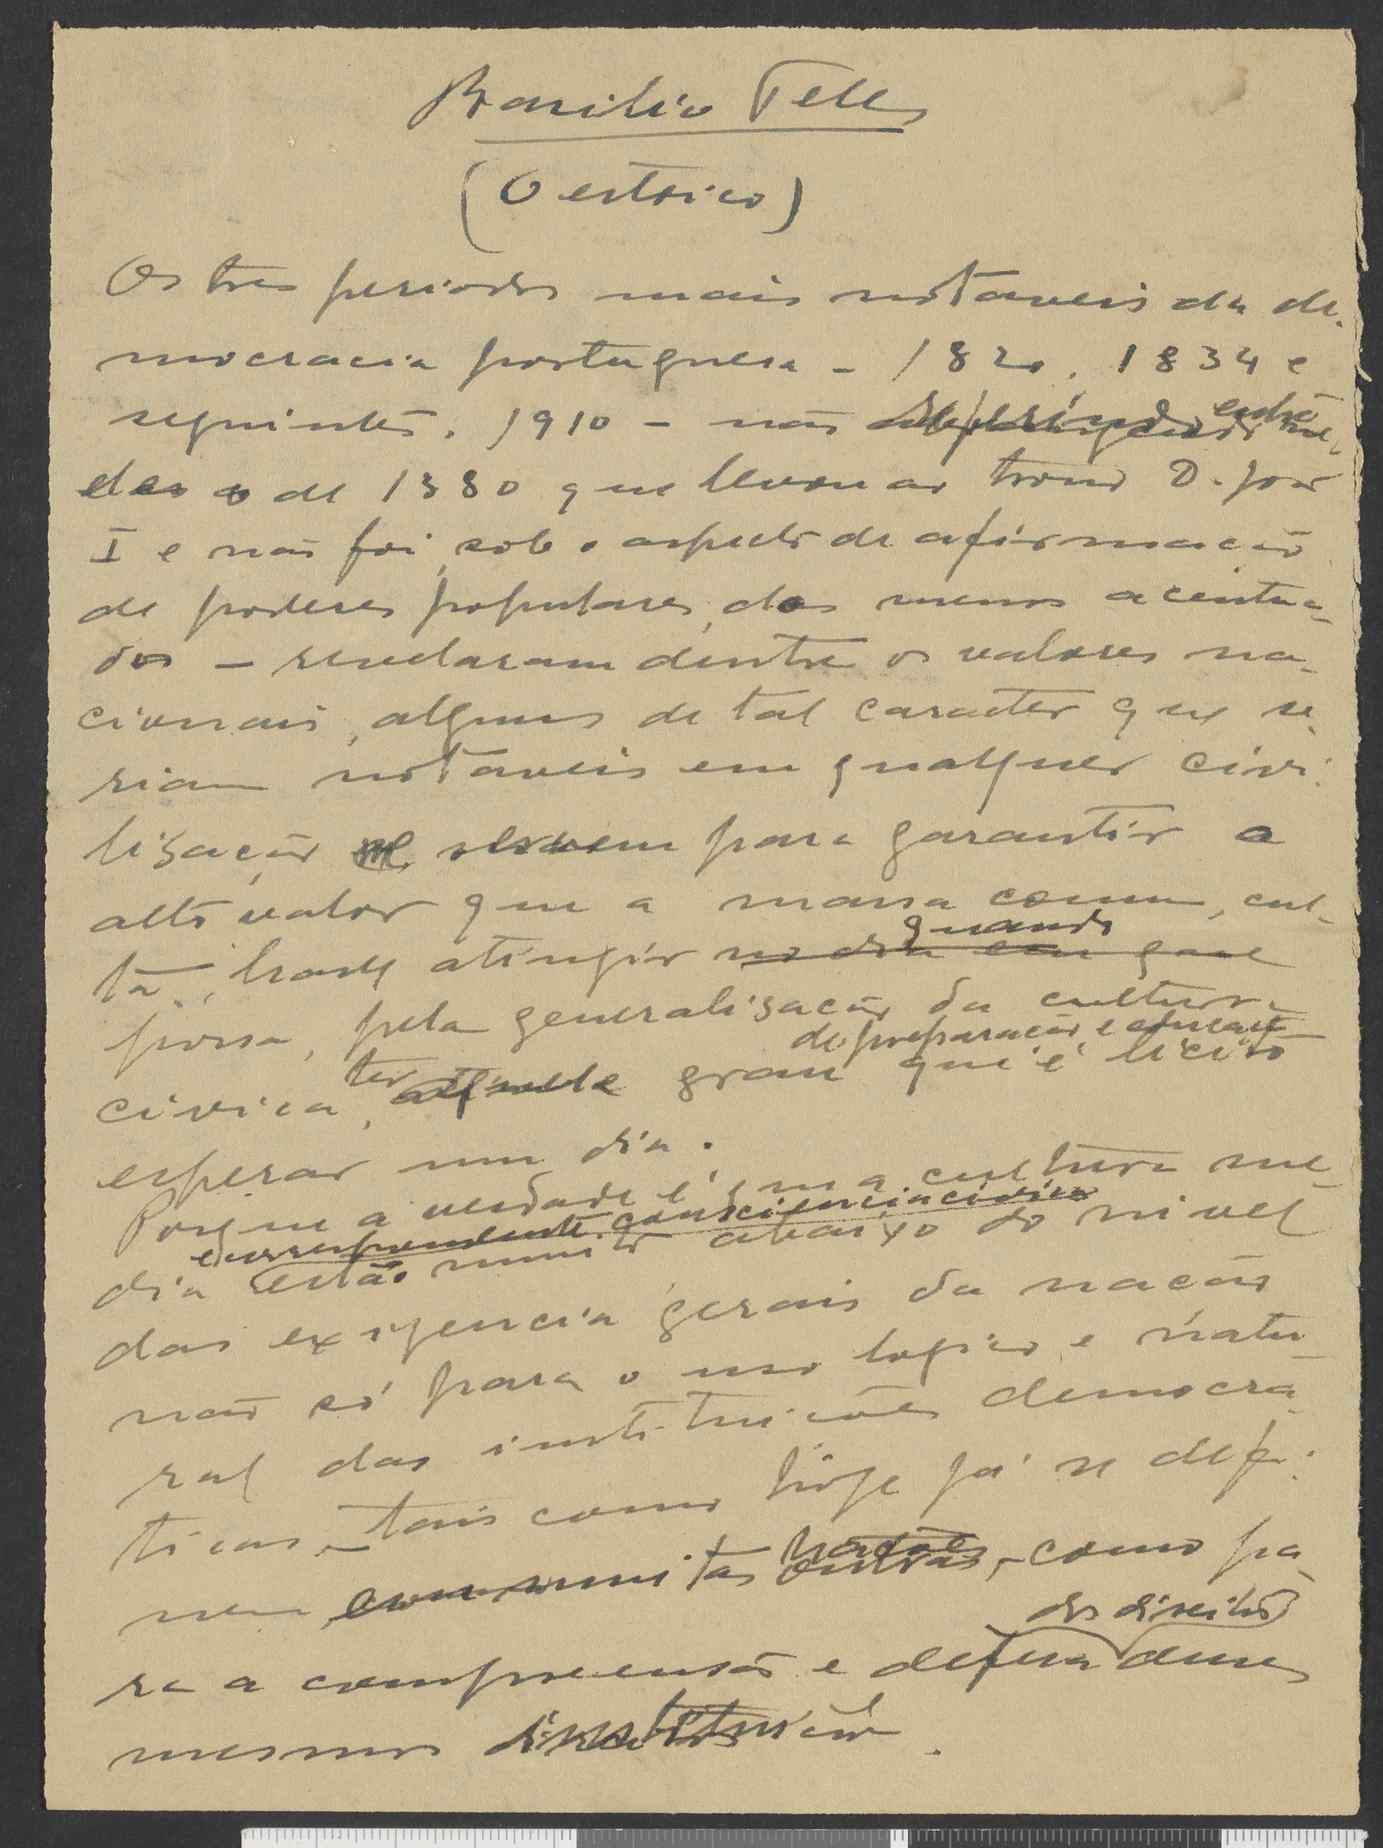 Basilio Telles
(O estoico)
Os tres periodos mais notaveis da de-
mocracia portuguesa – 1820, 1834 e
seguintes, 1910 – não
de 1380 que levou ao trono D. João
I e não foi, sob o aspecto de afirmação
de poderes populares, dos menos acentua-
dos – revelaram dentre os valores na-
cionais, alguns de tal caracter que se-
riam notaveis em qualquer civi-
lisação e servem para garantir o
alto valor que a massa comum, cul-
ta, hade atingir no dia em que
quando
possa, pela generalisação da cultura
de preparação e educação
civica, ter aquele grau que é licito
esperar um dia.
Porque a verdade é: uma cultura me-
e correspondente consciencia civica
dia estão muito abaixo do nivel
das exigencia gerais da nação
não só para o uso logico e natu-
ral das instituições democra-
ticas, tais como hoje já se defi-
nem em muitas outras, – como pa-
nações
ra a compreensão e defesa desses
dos direitos
mesmos instituição.